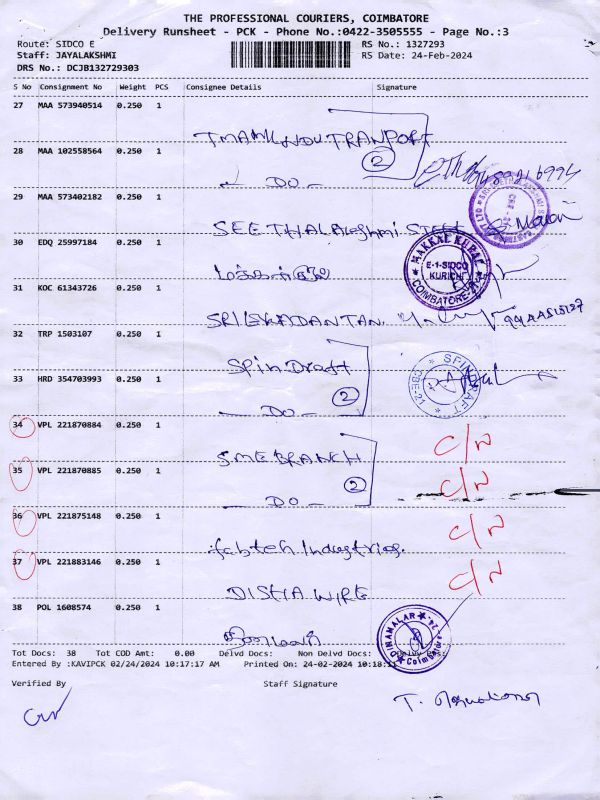 THE PROFESSIONAL COURIERS, COIMBATORE
Delivery Runsheet - PCK - Phone No.:0422-3505555 - Page No.:3
Route: SIDCO E RS No.: 1327293
Staff: JAYALAKSHMI RS Date: 24-Feb-2024
DRS No.: DCJB132729303
S No Consignment No Weight PCS Consignee Details Signature
27 MAA 573940514 0.250 1
TRANPORT
28 MAA 102558564 0.250 1 2
DO
29 MAA 573402182 0.250 1
30 EDQ 25997184 0.250 1
MAKKAL KURAL
E-1-SIDCO
KURICHI
COIMBATORE-21
31 KOC 61343726 0.250 1
32 TRP 1503107 0.250 1
Spin Draft
33 HRD 354703993 0.250 1 2
DO
34 VPL 221870884 0.250 1 C/N
SME BRANCH
35 VPL 221870885 0.250 1 2 C/N
DO
36 VPL 221875148 0.250 1 C/N
fabteh Industries.
37 VPL 221883146 0.250 1 C/N
DISHA WIRE
38 POL 1608574 0.250 1
தினமலர்
DINAMALAR
Coimbatore
Tot Docs: 38 Tot COD Amt: 0.00 Delvd Docs: Non Delvd Docs:
Entered By :KAVIPCK 02/24/2024 10:17:17 AM Printed On: 24-02-2024 10:18:
Verified By Staff Signature